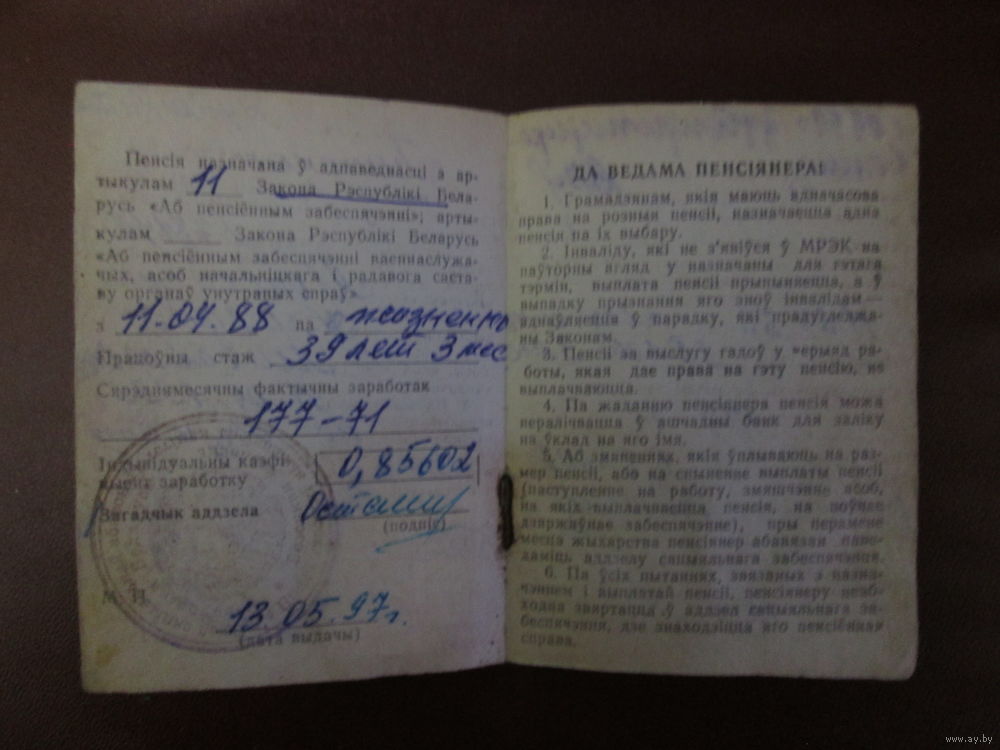 Пенсія назначана ў адпаведнасці з ар-
тыкулам 11 Закона Рэспублікі Бела-
русь «Аб пенсіённым забеспячэнні»; арты-
кулам Закона Рэспублікі Беларусь
«Аб пенсіённым забеспячэнні ваеннаслужа-
чых, асоб начальніцкага і радавога саста-
ву органаў унутраных спраў»
з 11.04.88 па пожизненно
Працоўны стаж 39 лет 3 мес
Сярэднямесячны фактычны заработак
177-71
Індывідуальны каэфі-
цыент заработку 0,85602
Загадчык аддзела
(подпіс)
М. П.
13.05.97г.
(дата выдачы)
ДА ВЕДАМА ПЕНСІЯНЕРА!
1. Грамадзянам, якія маюць адначасова
права на розныя пенсіі, назначаецца адна
пенсія па іх выбару.
2. Інваліду, які не з'явіўся ў МРЭК на
паўторны агляд у назначаны для гэтага
тэрмін, выплата пенсіі прыпыняецца, а ў
выпадку прызнання яго зноў інвалідам—
аднаўляецца ў парадку, які прадугледжа-
ны Законам.
3. Пенсіі за выслугу гадоў у перыяд ра-
боты, якая дае права на гэту пенсію, не
выплачваюцца.
4. Па жаданню пенсіянера пенсія можа
пералічвацца ў ашчадны банк для заліку
на ўклад на яго імя.
5. Аб зменах, якія ўплываюць на раз-
мер пенсіі, або на спыненне выплаты пенсіі
(паступленне на работу, змяшчэнне асоб,
на якіх выплачваецца пенсія, на поўнае
дзяржаўнае забеспячэнне), пры перамене
месца жыхарства пенсіянер абавязан паве-
даміць аддзелу сацыяльнага забеспячэння.
6. Па ўсіх пытаннях, звязаных з назна-
чэннем і выплатай пенсіі, пенсіянеру неаб-
ходна звяртацца ў аддзел сацыяльнага за-
беспячэння, дзе знаходзіцца яго пенсіённая
справа.
www.ay.by